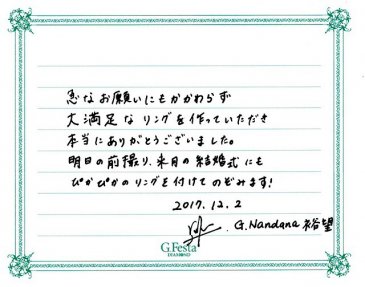 急なお願いにもかかわらず
大満足なリングを作っていただき
本当にありがとうございました。
明日の前撮り、来月の結婚式にも
ぴかぴかのリングを付けてのぞみます!
2017.12.2
G.Nandana 裕望
G.Festa
DIAMOND